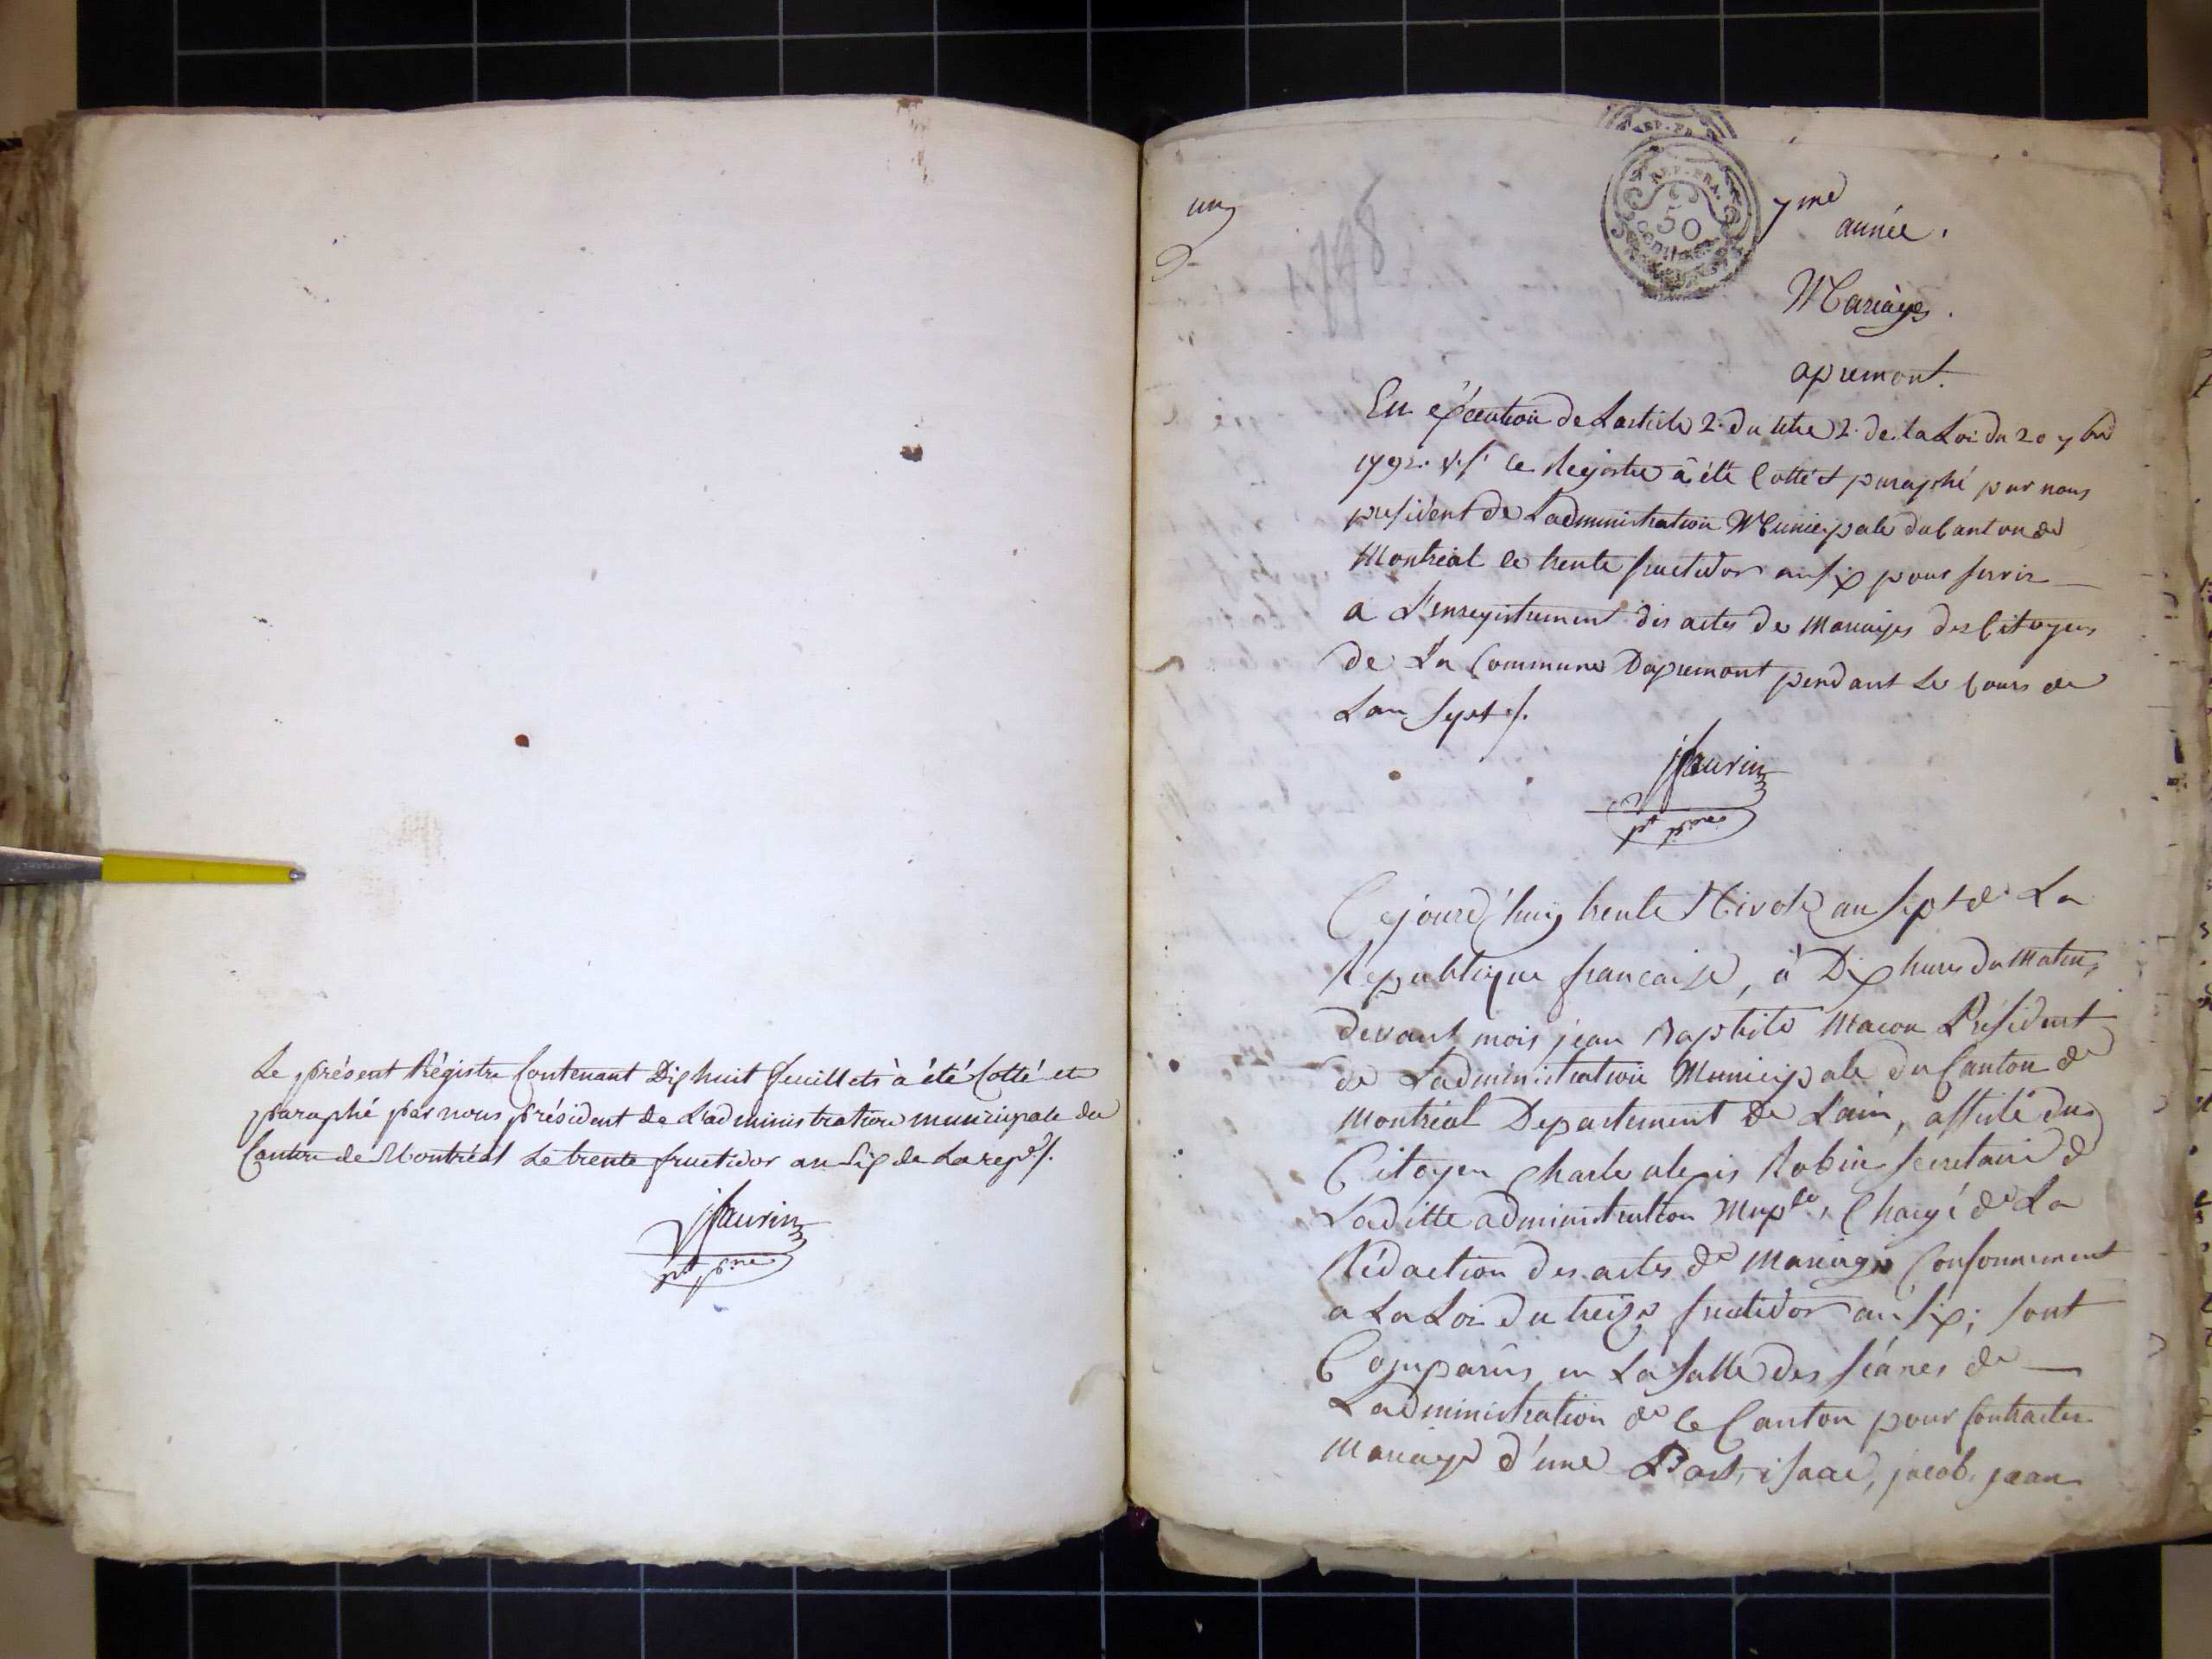 Le présent Régistre Contenant Dix huit feuillets à été Cotté et
paraphé par nous président de L'administration municipale du
Canton de Montréal Le trente fructidor an Six de La rep.
jfaurin
un
1798
REP. FRA.
50
centimes
7me
année.
Mariages.
apremont.
En éxécution de Larticle 2. du titre 2. de la Loi du 20 7bre
1792. v.s. ce Registre à été Cotté et paraphé par nous
president de Ladministration Municipale du Canton de
Montréal le trente fructidor an Six pour servir
a L'enregistrement des actes de Mariages des Citoyens
de La Commune Dapremont pendant Le Cours de
Lan Sept /.
jfaurin
Cejourd'huy trente Nivose an Sept de La
Republique francaise, à Dix heures du Matin,
devant mois jean Baptiste Macon Président
de Ladministration Municipale du Canton de
Montréal Departement De Lain, assisté du
Citoyen Charle alexis Robin Secretaire de
Laditte administration Muple, Chargé de La
Rédaction des actes de Mariages Conformement
a La Loi du treize fructidor an Six; sont
Comparûs en La Salle des Séances de
Ladministration de ce Canton pour Contracter
Mariage d'une Part, isaac, jacob, jean